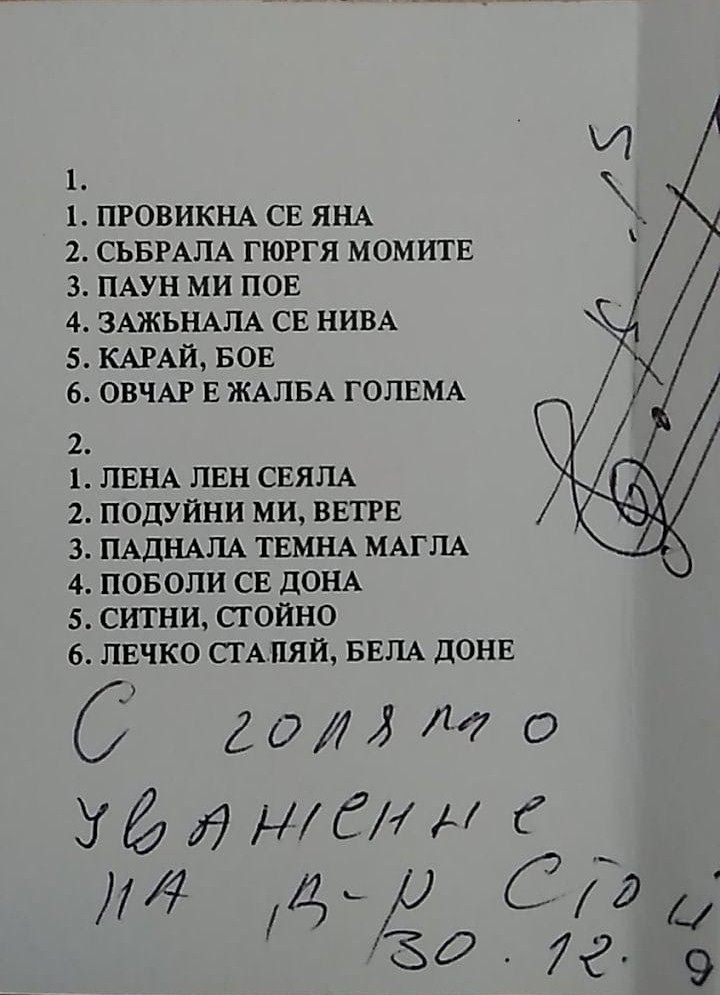 1.
1. ПРОВИКНА СЕ ЯНА
2. СЬБРАЛА ГЮРГЯ МОМИТЕ
3. ПАУН МИ ПОЕ
4. ЗАЖЬНАЛА СЕ НИВА
5. КАРАЙ, БОЕ
6. ОВЧАР Е ЖАЛБА ГОЛЕМА
2.
1. ЛЕНА ЛЕН СЕЯЛА
2. ПОДУЙНИ МИ, ВЕТРЕ
3. ПАДНАЛА ТЕМНА МАГЛА
4. ПОБОЛИ СЕ ДОНА
5. СИТНИ, СТОЙНО
6. ЛЕЧКО СТАПЯЙ, БЕЛА ДОНЕ
С голямо
уважение
на д-р Стой
30.12.9